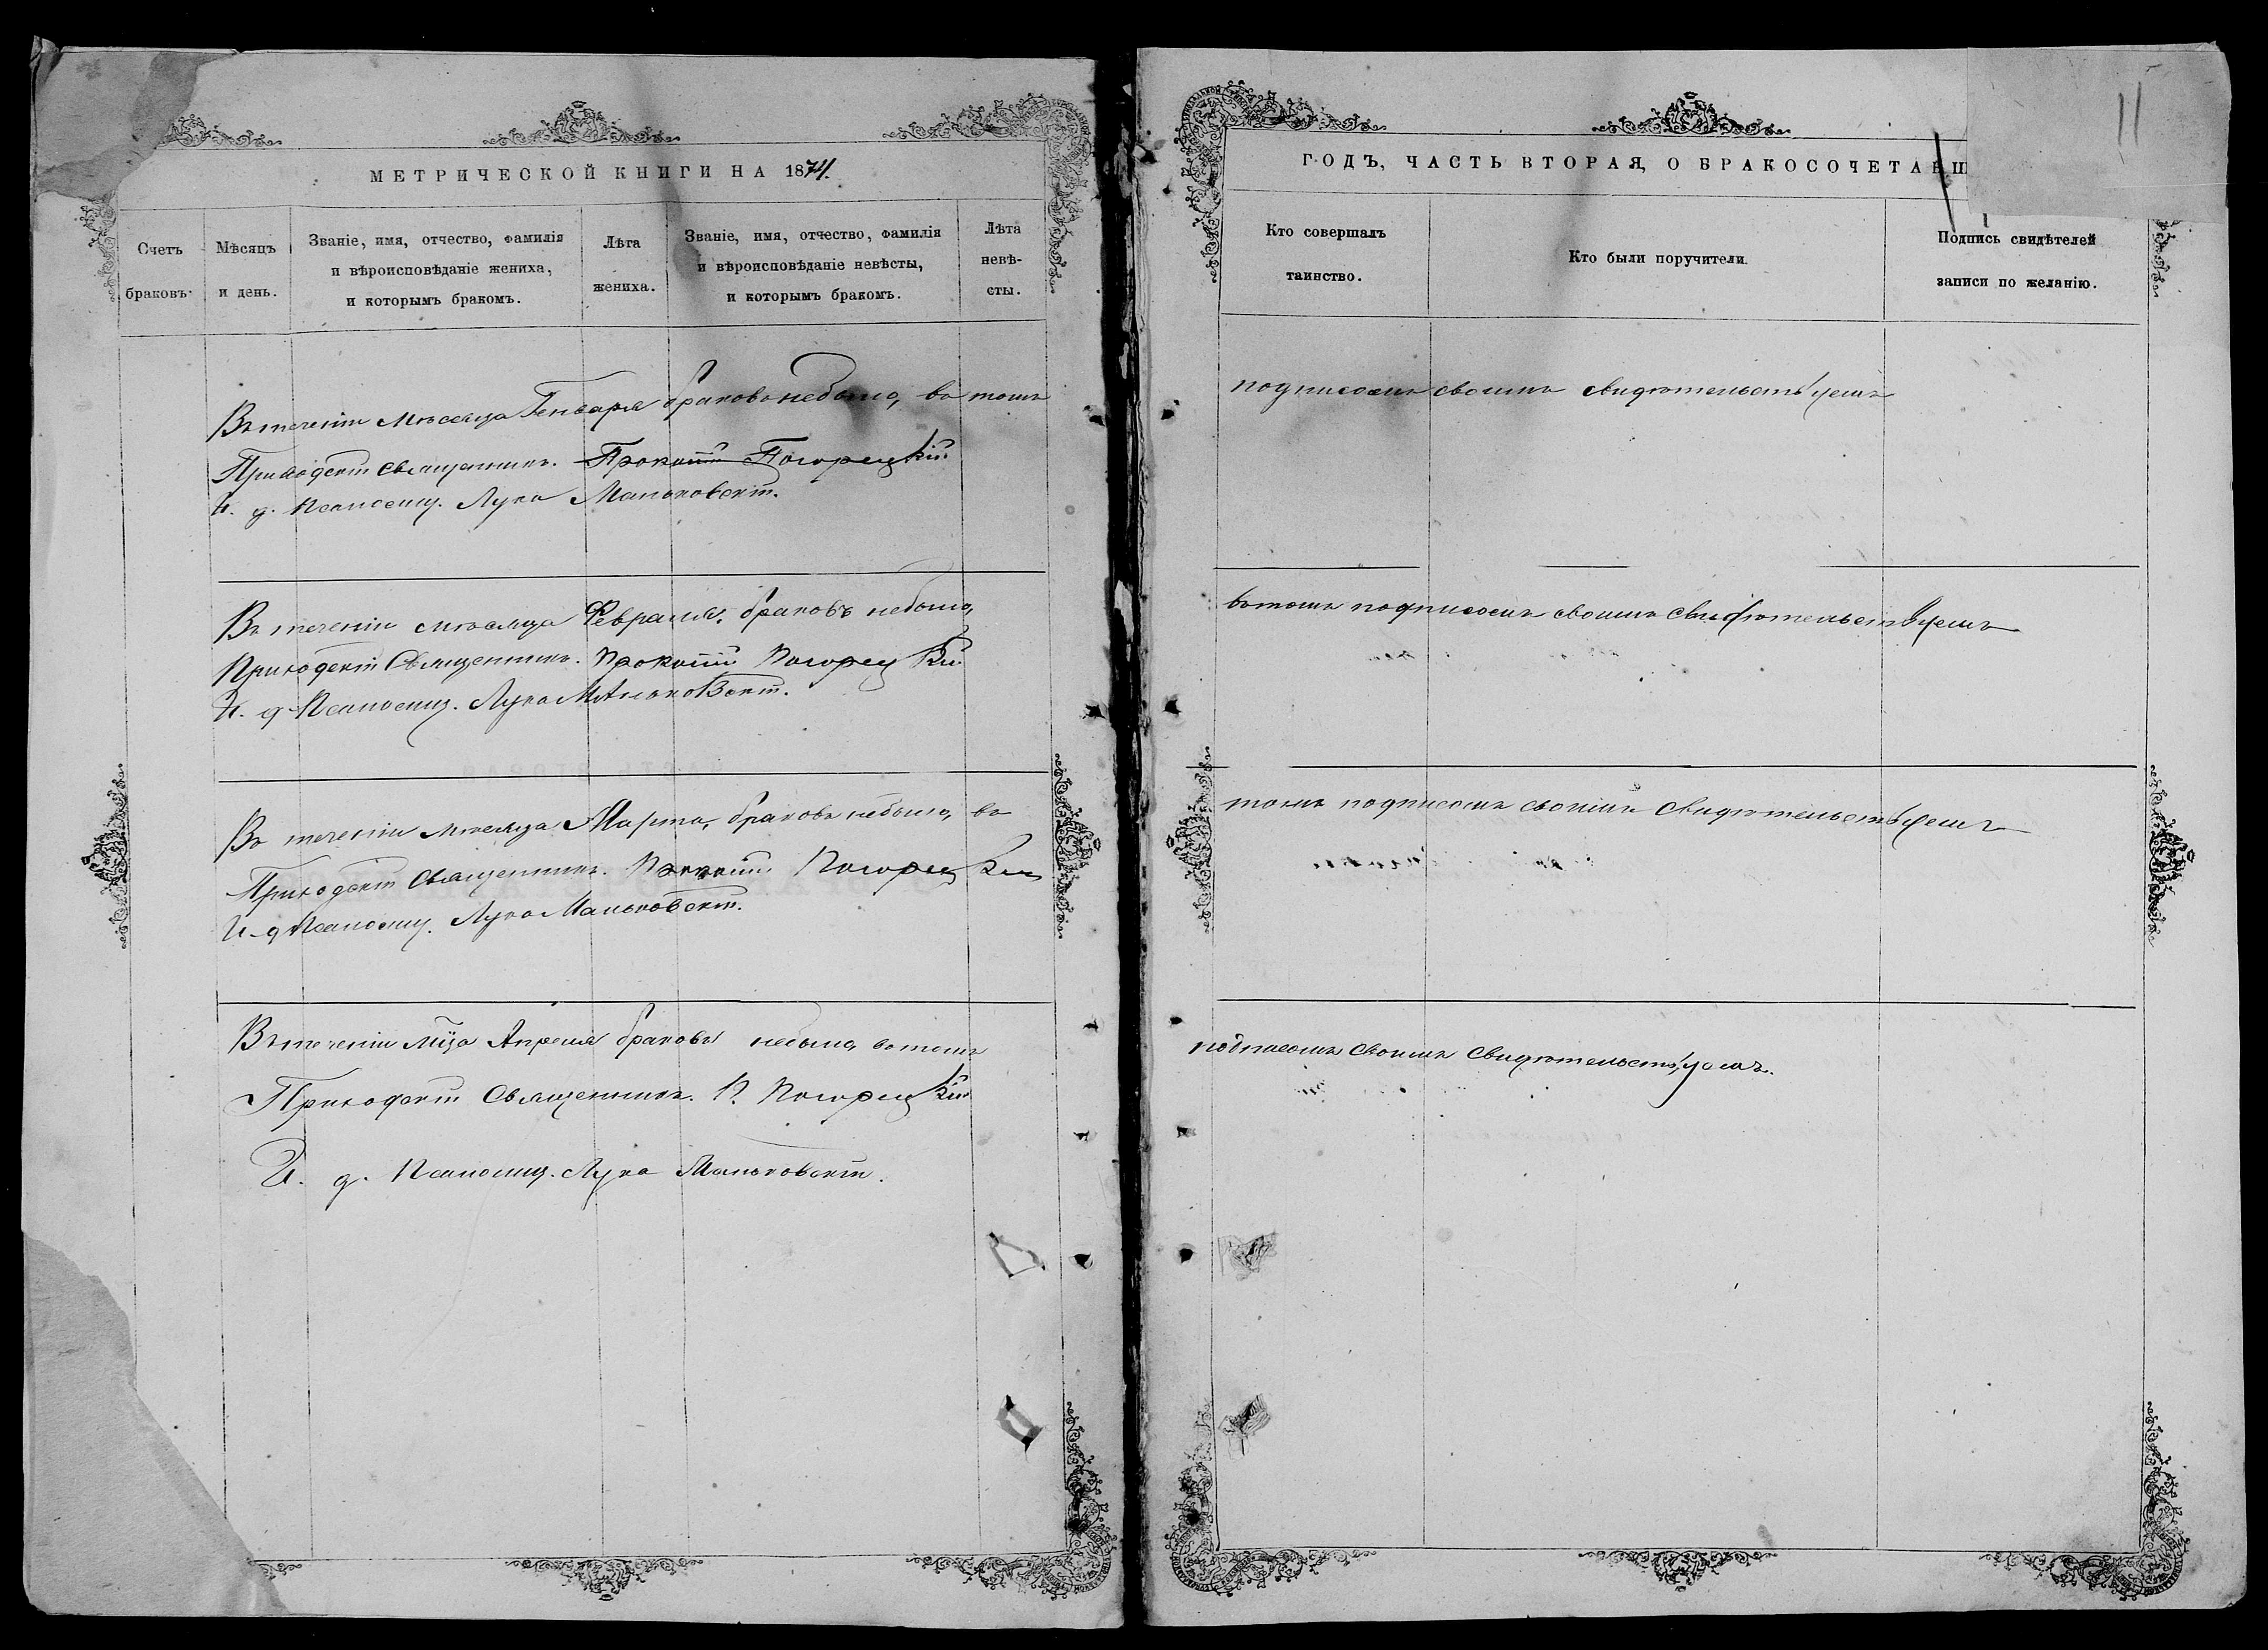 МЕТРИЧЕСКОЙ КНИГИ НА 1874.
Счетъ браковъ.
Мѣсяцъ и день.
Званіе, имя, отчество, фамилія и вѣроисповѣданіе жениха, и которымъ бракомъ.
Лѣта жениха.
Званіе, имя, отчество, фамилія и вѣроисповѣданіе невѣсты, и которымъ бракомъ.
Лѣта невѣ-сты.
Въ теченіи мѣсяца Генваря браковъ небыло, въ томъ
Приходскій Священникъ. Прокопій Погорецкій
И. д. Псаломщ. Лука Маньковскій.
Въ теченіи мѣсяца Февраля, браковъ небыло,
Приходскій Священникъ. Прокопій Погорецкій
И. д. Псаломщ. Лука Маньковскій.
Въ теченіи мѣсяца Марта, браковъ небыло, въ
Приходскій Священникъ. Прокопій Погорецкій
И. д. Псаломщ. Лука Маньковскій.
Въ теченіи мца Апреля браковъ небыло, въ томъ
Приходскій Священникъ. П. Погорецкій
И. д. Псаломщ. Лука Маньковскій.
11
ГОДЪ, ЧАСТЬ ВТОРАЯ, О БРАКОСОЧЕТАВШ
Кто совершалъ таинство.
Кто были поручители.
Подпись свидѣтелей записи по желанію.
подписомъ своимъ свидѣтельствуемъ
въ томъ подписомъ своимъ свидѣтельствуемъ
томъ подписомъ своимъ свидѣтельствуемъ
подписомъ своимъ свидѣтельствуемъ.